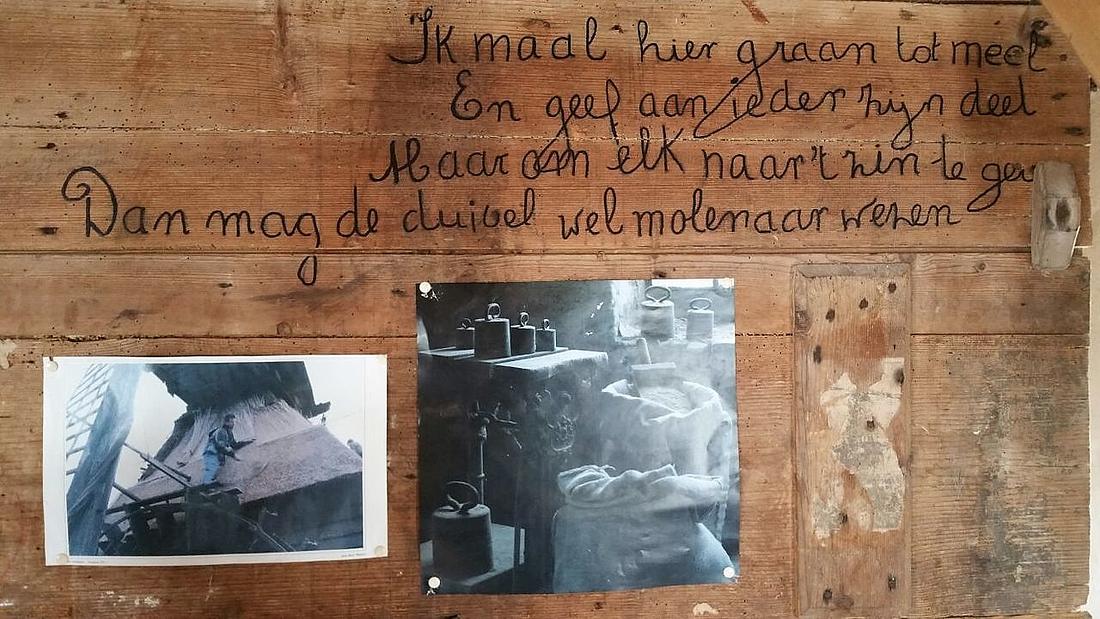 Ik maal hier graan tot meel
En geef aan ieder zijn deel
Maar om elk naar't zin te
Dan mag de duivel wel molenaar wezen